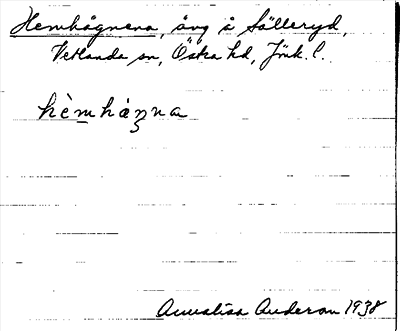 Hemhågnena, äng å Sälleryd,
Vetlanda sn, Östra hd, Jönk. l.
hèmhåŋna
Annalisa Anderson 1938